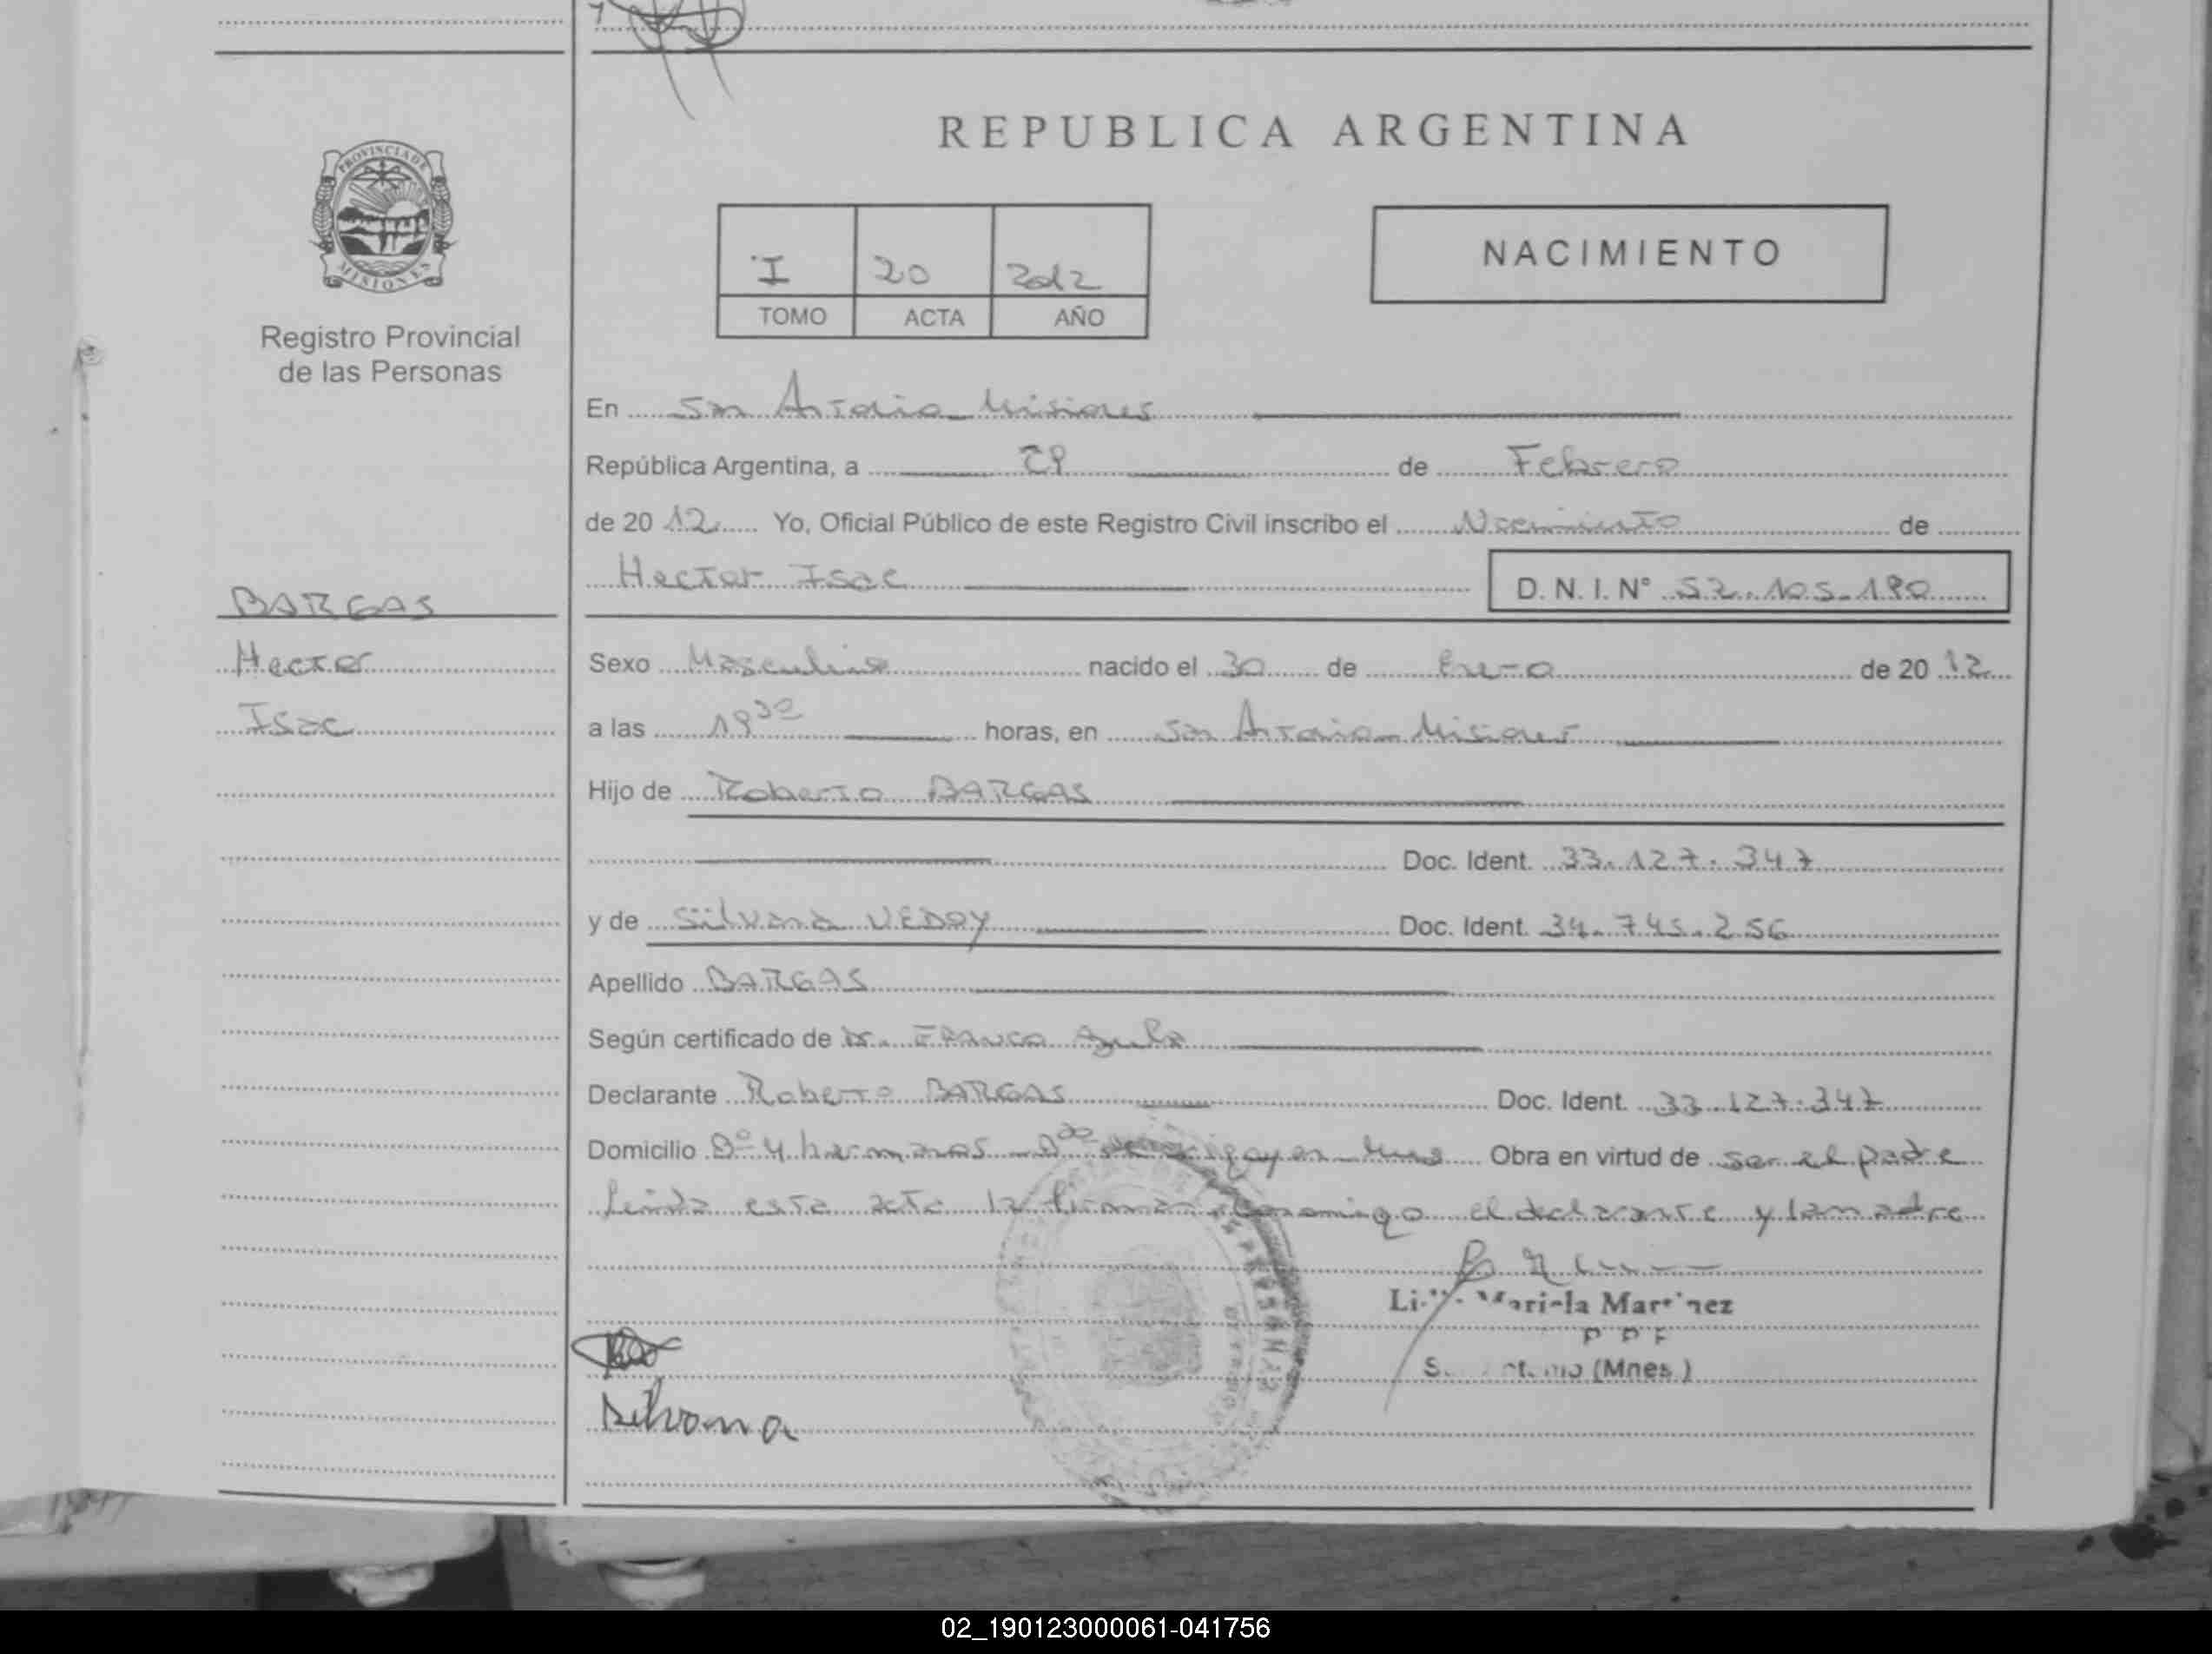 REPUBLICA ARGENTINA
PROVINCIA DE
MISIONES
Registro Provincial
de las Personas
I 20 2012
TOMO ACTA AÑO
NACIMIENTO
En San Antonio Misiones
República Argentina, a de Febrero
de 20 12 Yo, Oficial Público de este Registro Civil inscribo el Nacimiento de
Hector Isac
D. N. I. N° 52.105.190
BARGAS
Hector
Isac
Sexo Masculino nacido el 30 de Enero de 20 12
a las 19 30 horas, en San Antonio Misiones
Hijo de Roberto BARGAS
Doc. Ident. 33.127.347
y de Silvana VEDOY Doc. Ident. 34.745.256
Apellido BARGAS
Según certificado de Dr. FRANCO
Declarante Roberto BARGAS Doc. Ident. 33.127.347
Domicilio Bº 4 hermanos Obra en virtud de ser el padre
Leida esta acta la firman conmigo el declarante y la madre
Mariela Martinez
(Mnes.)
Silvana
02_190123000061-041756